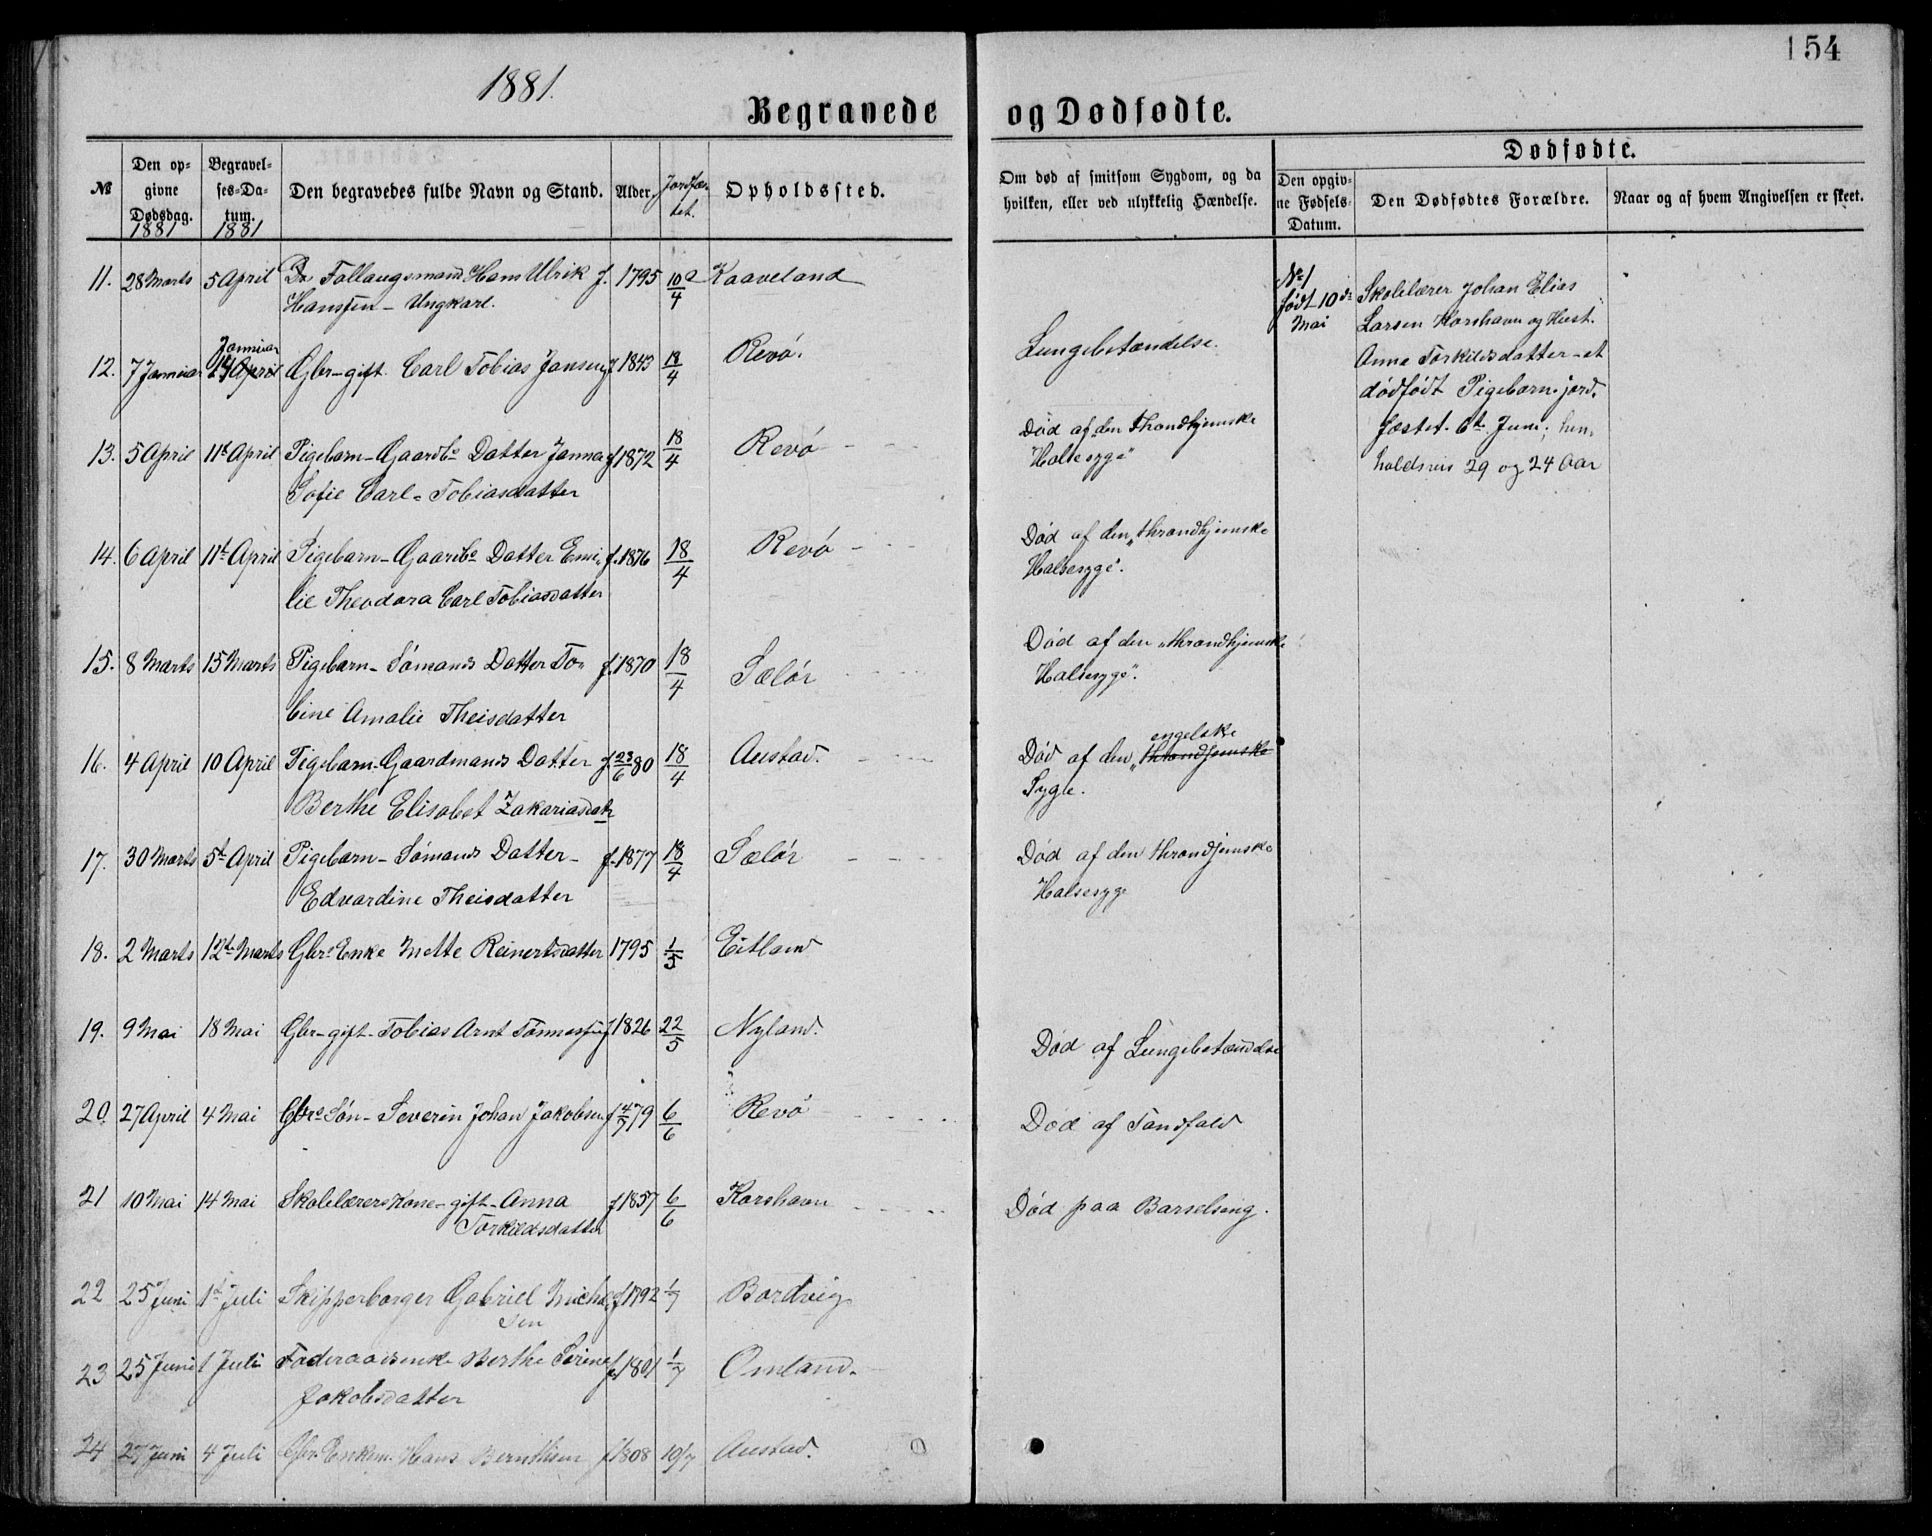 154
1881.
Begravede og Dødfødte.
Dødfødte.
№
Den op-
givne
Dødsdag.
1881
Begravel-
ses-Da-
tum.
1881
Den begravedes fulde Navn og Stand.
Alder.
Jordfæs-
tet.
Opholdssted.
Om død af smitsom Sygdom, og da
hvilken, eller ved ulykkelig Hændelse.
Den opgiv-
ne Fødsels-
Datum.
Den Dødfødtes Forældre.
Naar og af hvem Angivelsen er skeet.
11. 28 Marts 5 April Hans Ulrik f. 1795 10/4 Kaaveland
Hanssen - Ungkarl.
Januar
12. 7 Januar 14 April Gbr - gift. Carl Tobias Jansen f 1843 18/4 Revø. Lungebetændelse.
13. 5 April 11t April Pigebarn - Gaardbs Datter Janna f 1872 18/4 Revø Død af den Throndhjemske
Sofie Carl - Tobiasdatter Halsesyge"
14. 6 April 11t April Pigebarn - Gaardbs Datter Emi- f. 1876 18/4 Revø Død af den „Throndhjemske
lie Theodora Carl Tobiasdatter Halsesyge".
15. 8 Marts 15 Marts Pigebarn - Sømands Datter To- f. 1870 18/4 Sælør Død af den „Throndhjemske
bine Amalie Theisdatter Halsesyge".
engelske
16. 4 April 10 April Pigebarn - Gaardmands Datter f. 23/6 80 18/4 Austad. Død af den „Throndjemske
Berthe Elisabet Zakariasdatr Syge.
17. 30 Marts 5t April Pigebarn - Sømands Datter - f. 1877 18/4 Sælør Død af den Throndjemske
Edvardine Theisdatter Halsesyge
18. 2 Marts 12t Marts Gbrs Enke Mette Reinertsdatter 1795 1/5 Eitland
19. 9 Mai 18 Mai Gbr - gift - Tobias Arnt Tønnessen f 1826 22/5 Nyland. Død af Lungebetændelse
20. 27 April 4 Mai Gbrs Søn - Severin Johan Jakobsen f 4/7 79 6/6 Revø Død af Tandfald
21 10 Mai 14 Mai Skolelærers Kone - gift - Anna f 1857 6/6 Korshavn Død paa Barselseng.
Torkildsdatter
22 25 Juni 1t Juli Skipperborger Gabriel Michel- f 1792 1/7 Bordvig
sen
23 25 Juni 1 Juli Foderaadsenke Berthe Serine f. 1801 1/7 Omland.
Jakobsdatter
24 27 Juni 4 Juli Gbr. Enkem. Hans Bernthsen f 1808 10/7 Austad.
№ 1
født 10de
Mai
Skolelærer Johan Elias
Larsen Korshavn og Hust.
Anna Torkildsdatter - et
dødfødt Pigebarn. jord.
fæstet. 6t Juni; hen-
holdsvis 29 og 24 Aar